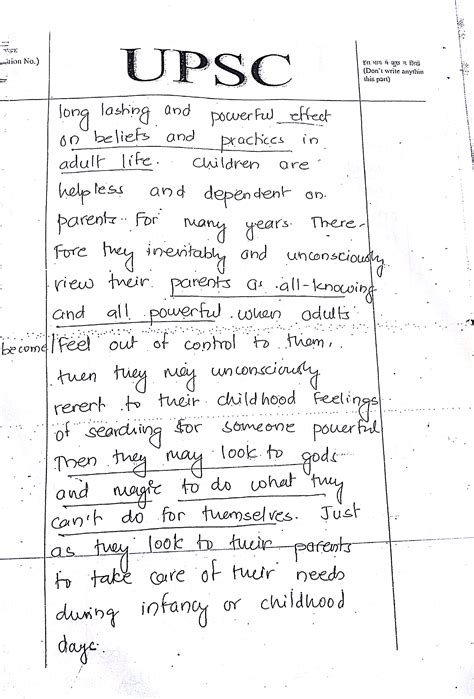 ation No.)
UPSC
इस भाग में कुछ न लिखें
(Don't write anythin
this part)
long lasting and powerful effect
on beliefs and practices in
adult life. Children are
helpless and dependent on
parents. For many years. There-
Fore they inevitably and unconsciously
view their parents as all-knowing
and all powerful. when adults
become feel out of control to them,
then they may unconsciously
rerert to their childhood feelings
of searching for someone powerful
Then they may look to gods
and magic to do what they
can't do for themselves. Just
as they look to their parents
to take care of their needs
during infancy or childhood
days.